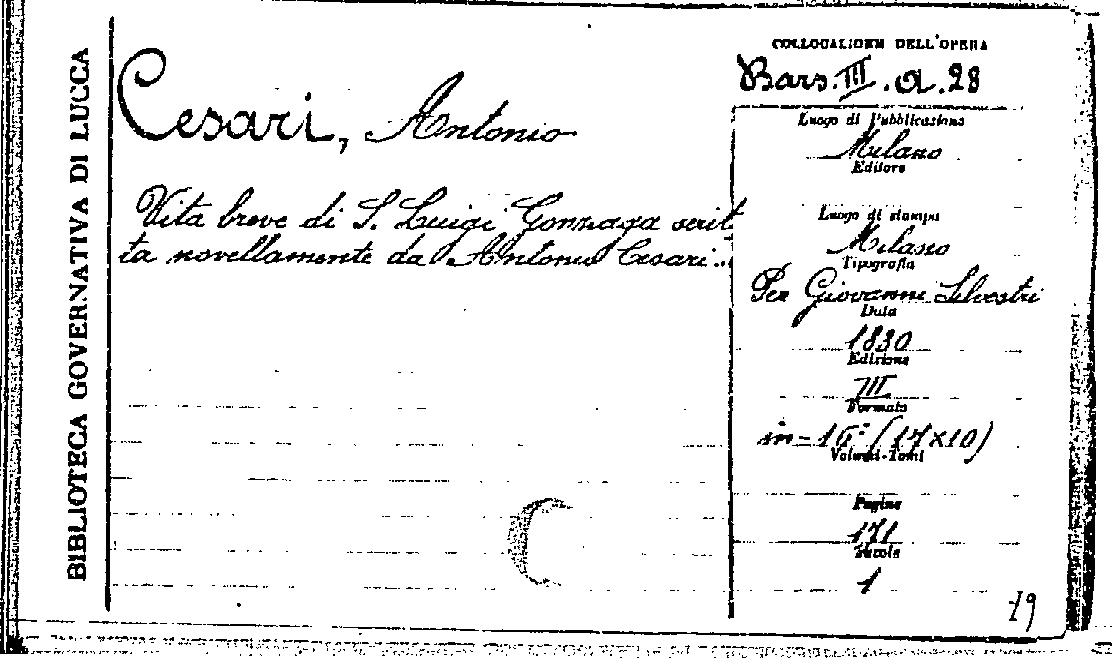 BIBLIOTECA GOVERNATIVA DI LUCCA
Cesari, Antonio
Vita breve di S. Luigi Gonzaga scrit
ta novellamente da Antonio Cesari...
COLLOCAZIONE DELL'OPERA
Bars. III. a. 28
Luogo di Pubblicazione
Milano
Editore
Luogo di stampa
Milano
Tipografia
Per Giovanni Silvestri
Data
1830
Edizione
III
Formato
in-16° (17x10)
Volumi-Tomi
Pagine
171
Tavole
1
19